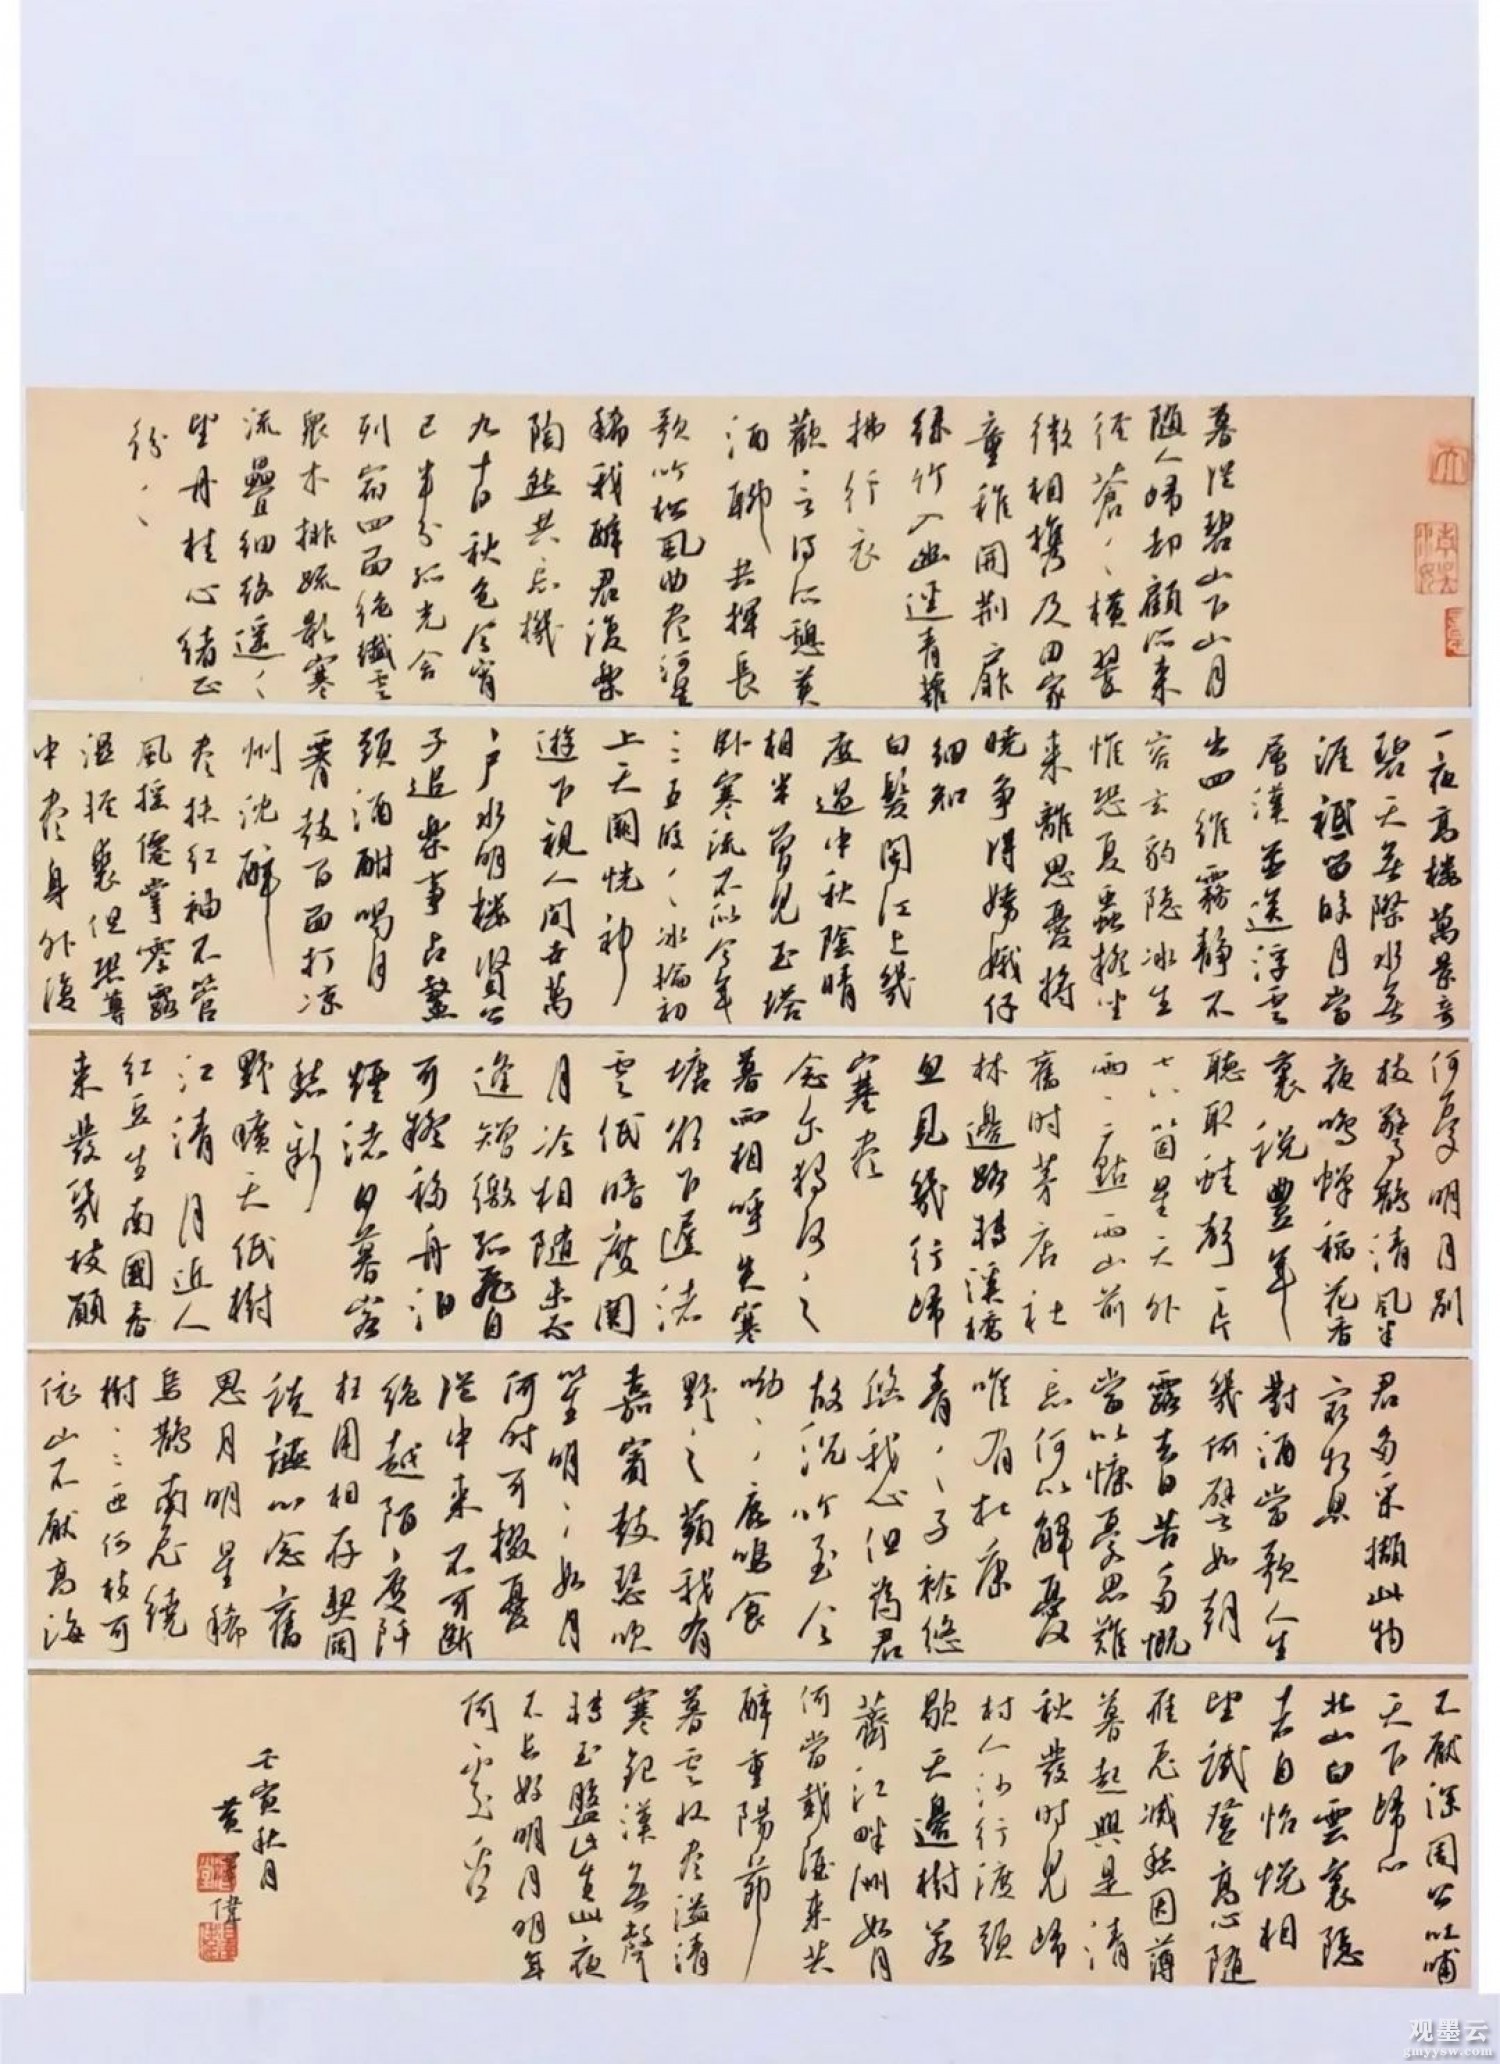 暮從碧山下山月
隨人歸却顧所來
徑蒼〻橫翠
微相攜及田家
童稚開荊扉
綠竹入幽逕青蘿
拂行衣
歡言得所憩美
酒聊共揮長
歌吟松風曲盡河星
稀我醉君復樂
陶然共忘機
九十日秋色今宵
已半分孤光含
列宿四面絕纖雲
眾木排疏影寒
流疊細紋遙〻
望丹桂心緒正
紛〻
一夜高樓萬景奇
碧天無際水無
涯秪留皎月當
層漢並送浮雲
出四維霧靜不
容玄豹隱冰生
惟恐夏蟲疑坐
來離思憂將
曉爭得嫦娥仔
細知
白髮閒江上幾
度過中秋陰晴
相半曾見玉塔
卧寒流不似今年
三五皎〻冰輪初
上天闕恍神
遊下視人間世萬
戶水明樓賢公
子追樂事占鰲
頭酒酣喝月
腰鼓百面打涼
州沈醉
盡扶紅袖不管
風搖僊掌零露
濕輕裘但恐尊
中盡身外復
何憂明月別
枝驚鵲清風半
夜鳴蟬稻花香
裏說豐年
聽取蛙聲一片
七八箇星天外
兩三點雨山前
舊时茅店社
林邊路轉溪橋
忽見幾行歸
塞盡
念爾獨何之
暮雨相呼失寒
塘欲下遲渚
雲低暗度關
月冷相隨未必
逢矰繳孤飛自
可疑移舟泊
煙渚日暮客
愁新
野曠天低樹
江清月近人
紅豆生南國春
來發幾枝願
君多采擷此物
最相思
對酒當歌人生
幾何譬如朝
露去日苦多慨
當以慷憂思難
忘何以解憂
唯有杜康
青〻子衿悠
悠我心但為君
故沉吟至今
呦〻鹿鳴食
野之蘋我有
嘉賓鼓瑟吹
笙明〻如月
何时可掇憂
從中來不可斷
絕越陌度阡
枉用相存契闊
談讌心念舊
恩月明星稀
烏鵲南飛繞
樹三匝何枝可
依山不厭高海
不厭深周公吐哺
天下歸心
北山白雲裏隱
者自怡悅相
望試登高心隨
雁飛滅愁因薄
暮起興是清
秋發时見歸
村人沙行渡頭
歇天邊樹若
薺江畔洲如月
何當載酒來共
醉重陽節
暮雲收盡溢清
寒銀漢無聲
轉玉盤此生此夜
不長好明月明年
何處看
壬寅秋月
黃偉
观墨云
gmyysw.com